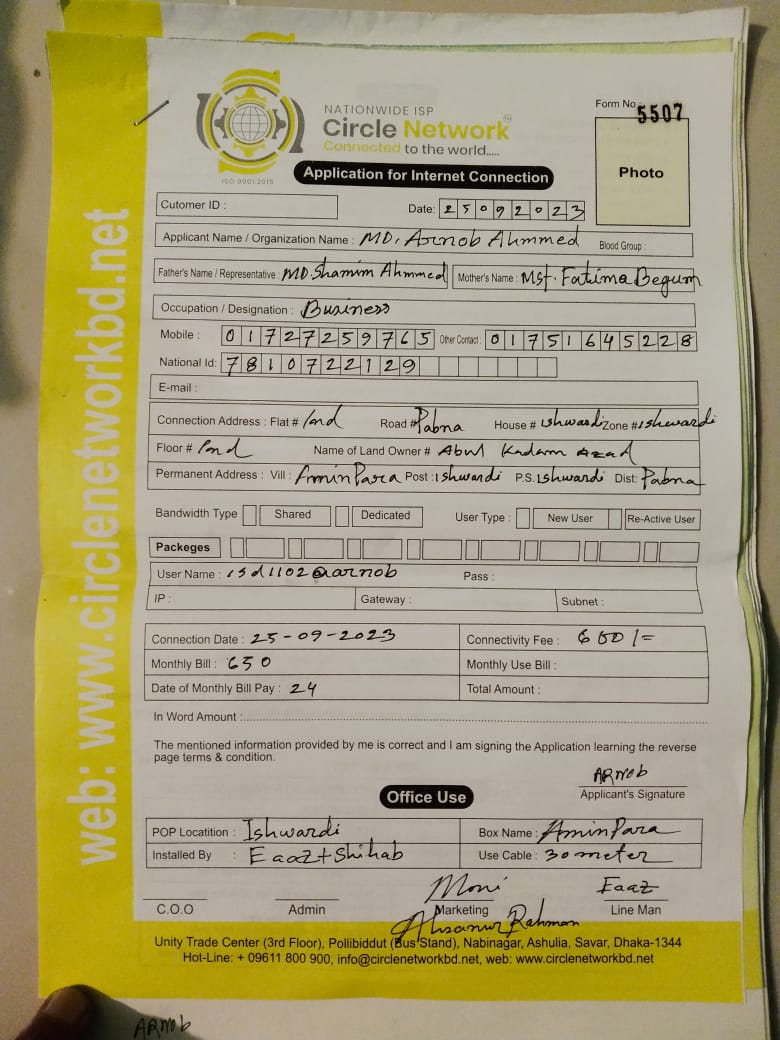 NATIONWIDE ISP
Circle Network
Connected to the world.....
ISO 9001:2015
Form No. 5507
Photo
Application for Internet Connection
Cutomer ID :
Date: 25092023
Applicant Name / Organization Name : MD. Arnob Ahmmed Blood Group :
Father's Name / Representative : MD.Shamim Ahmmed Mother's Name : Mst. Fatima Begum
Occupation / Designation : Business
Mobile : 01727259765 Other Contact : 01751645228
National Id: 7810722129
E-mail :
Connection Address : Flat # Road # Pabna House # ishwardi Zone # ishwardi
Floor # Name of Land Owner # Abul Kadam Azad
Permanent Address : Vill : AminPara Post : ishwardi P.S. Ishwardi Dist: Pabna
Bandwidth Type Shared Dedicated User Type : New User Re-Active User
Packeges
User Name : isd1102@arnob Pass :
IP : Gateway : Subnet :
Connection Date : 25-09-2023 Connectivity Fee :
Monthly Bill : 650 Monthly Use Bill :
Date of Monthly Bill Pay : 24 Total Amount :
In Word Amount :
The mentioned information provided by me is correct and I am signing the Application learning the reverse
page terms & condition.
ARNOb
Applicant's Signature
Office Use
POP Locatition : Ishwardi Box Name : AminPara
Installed By : Eaaz+Shihab Use Cable : 30 meter
Moni Eaaz
C.O.O Admin Marketing Line Man
Ahsanur Rahman
Unity Trade Center (3rd Floor), Pollibiddut (Bus Stand), Nabinagar, Ashulia, Savar, Dhaka-1344
Hot-Line: + 09611 800 900, info@circlenetworkbd.net, web: www.circlenetworkbd.net
web: www.circlenetworkbd.net
ARNOb